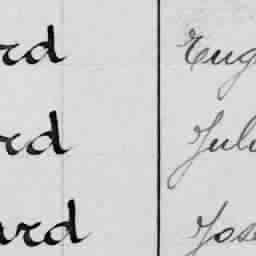 rd Eug
rd Juli
ard Jose